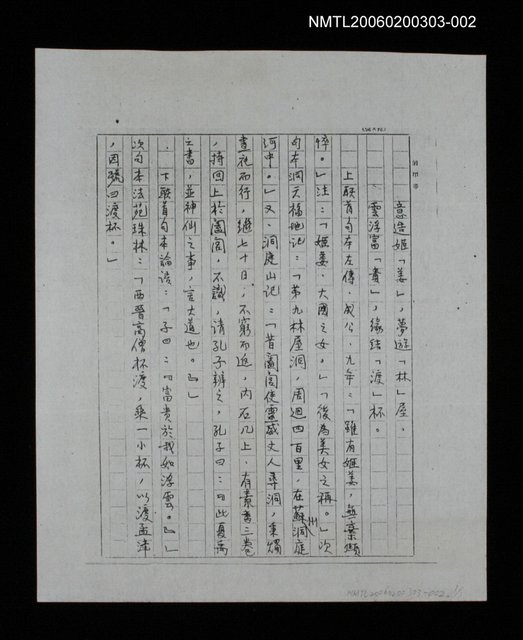 NMTL20060200303-002
意造姬「姜」,夢遊「林」屋、
雲浮富「貴」,緣結「渡」杯。
上联首句本左傳、成公、九年:「雖有姬姜,無棄顦
悴。」注:「姬姜,大國之女。」「後為美女之稱。」次
句本洞天福地記:「第九林屋洞,周迴四百里,在蘇州洞庭
河中。」又、洞庭山記:「昔闔閭使靈威丈人尋洞,秉燭
晝夜而行,繼七十日,不窮而返,內石几上,有素書三卷
,持回上於闔閭,不識,請孔子辨之,孔子曰:『此夏禹
之書,並神仙之事,言大道也。』」
下联首句本論語:「子曰:『富貴於我如浮雲。』」
次句本法苑珠林:「西晋高僧杯渡,乘一小杯,以渡孟津
,因號曰渡杯。」
NMTL20060200303-002